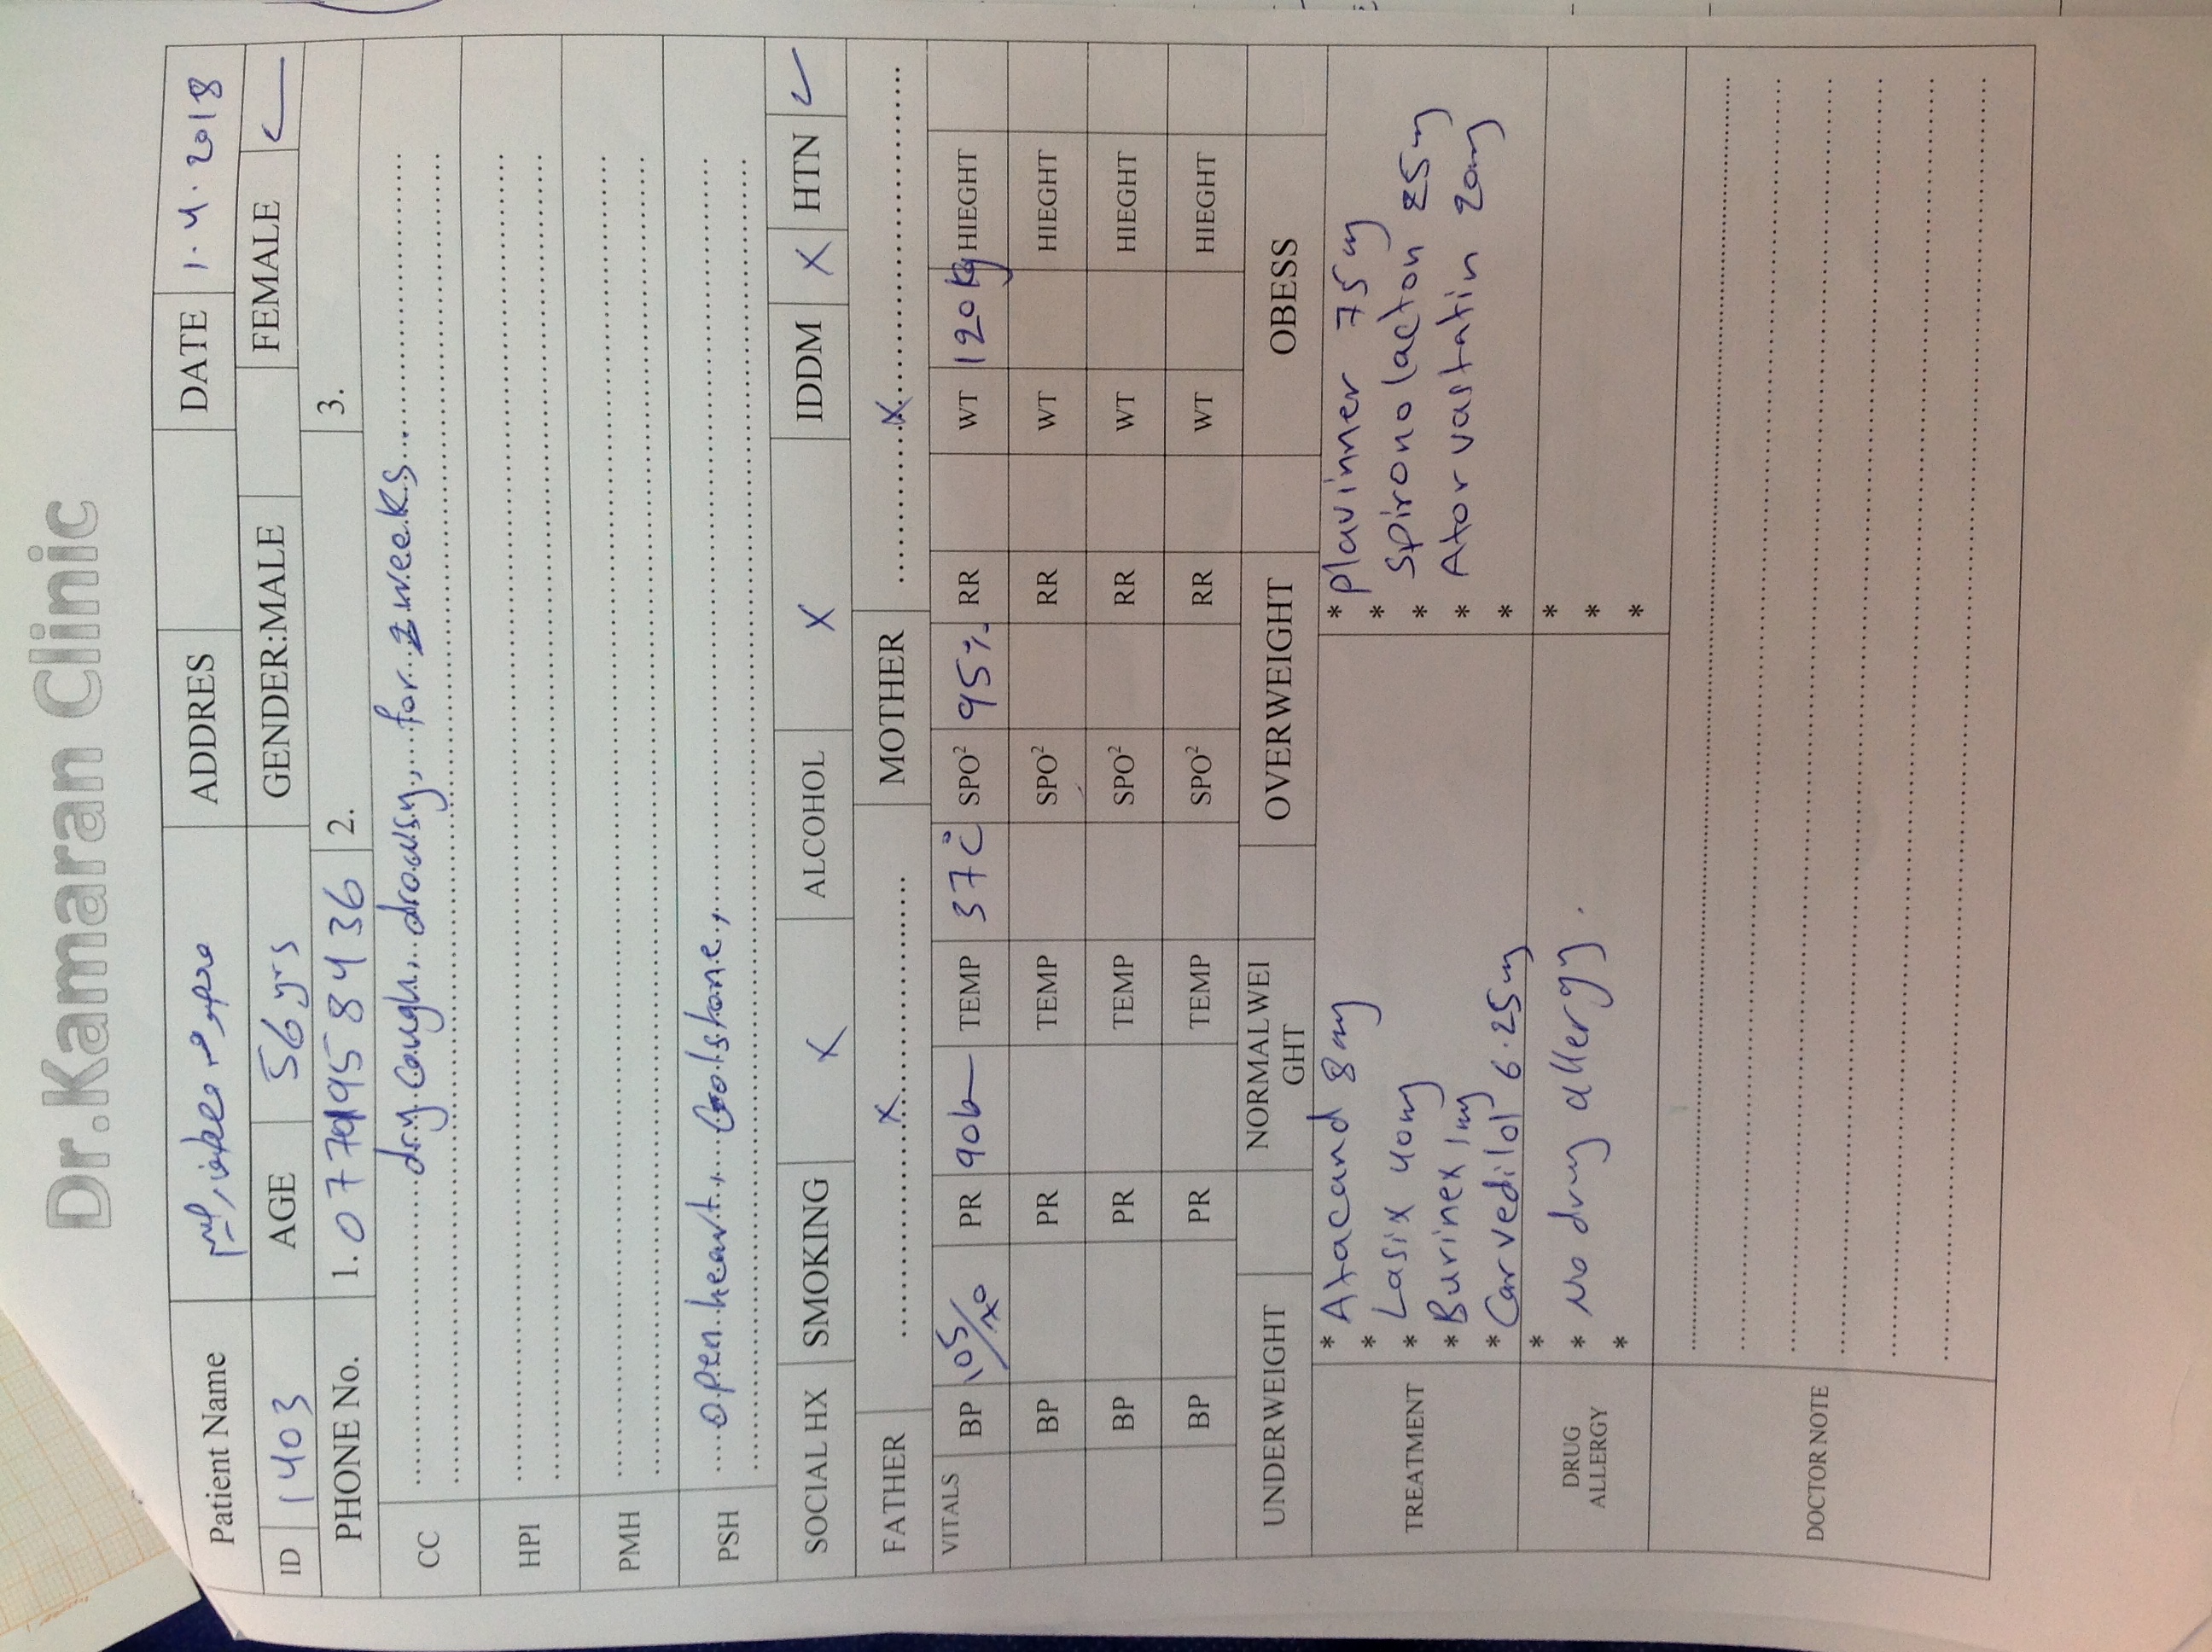 Dr.Kamaran Clinic
Patient Name ADDRES DATE 1.4.2018
ID 1403 AGE 56 yrs GENDER:MALE FEMALE ✓
PHONE No. 1. 2. 3.
CC dry cough, drowsy, for 2 weeks
HPI
PMH
PSH open heart,
SOCIAL HX SMOKING X ALCOHOL X IDDM X HTN ✓
FATHER X MOTHER X
VITALS BP 105/70 PR 90b TEMP 37 C SPO² 95% RR WT 120 kg HIEGHT
BP PR TEMP SPO² RR WT HIEGHT
BP PR TEMP SPO² RR WT HIEGHT
BP PR TEMP SPO² RR WT HIEGHT
UNDERWEIGHT NORMALWEI
GHT OVERWEIGHT OBESS
TREATMENT
* Atacand 8 mg * Plavinner 75 mg
* Lasix 40 mg * Spironolacton 25 mg
* Burinex 1 mg * Atorvastatin 20 mg
* Carvedilol 6.25 mg *
DRUG
ALLERGY
* *
* No drug allergy. *
* *
DOCTOR NOTE